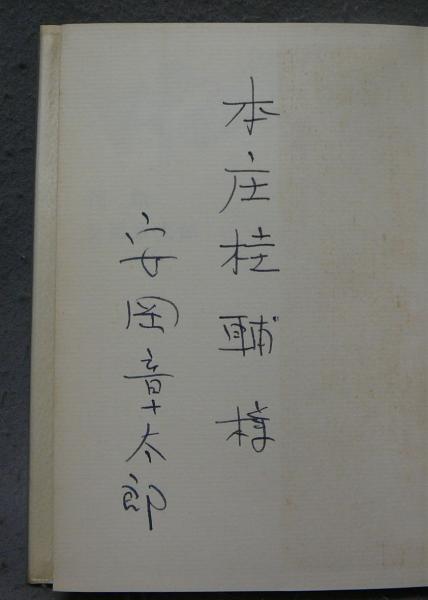 本庄桂輔様
安岡章太郎